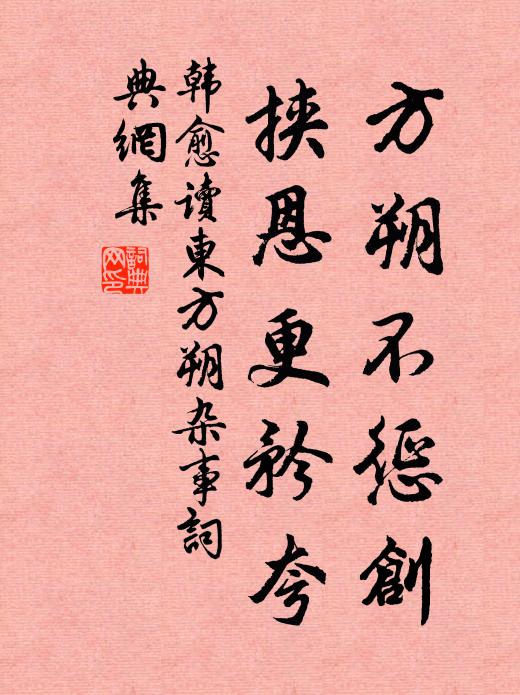 方朔不惩創
挾恩更矜夸
韩愈读東方朔杂事詞
典網集
詞典
网印